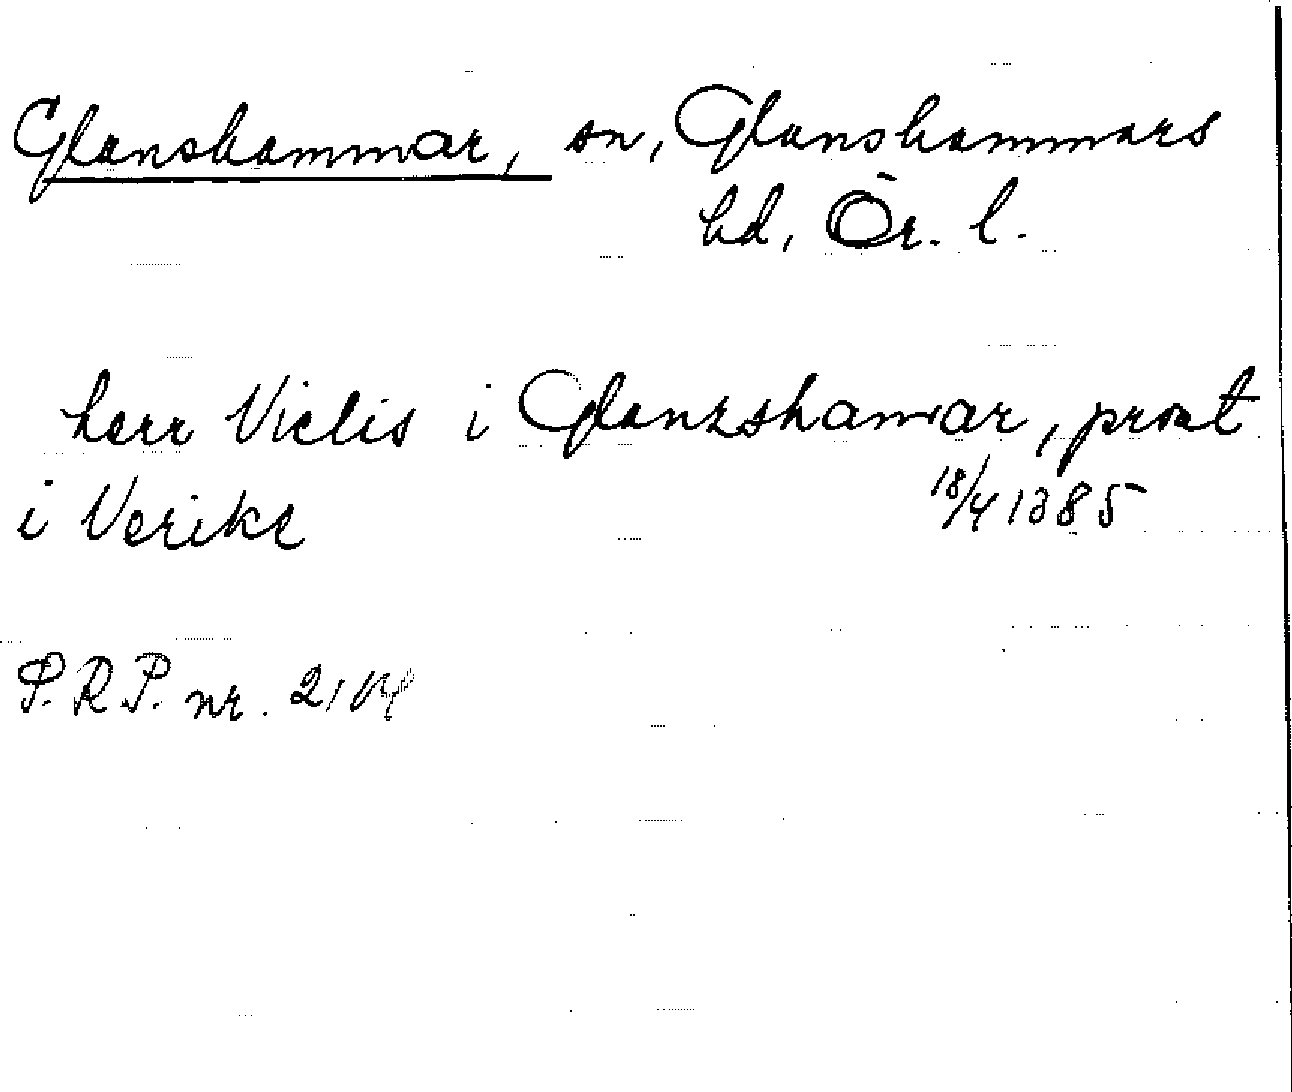 Glanshammar, sn, Glanshammars
hd, Ör. l.
herr Viclis i Glanzshamar, prost
i Nerike 18/4 1385
P.R.P. nr.